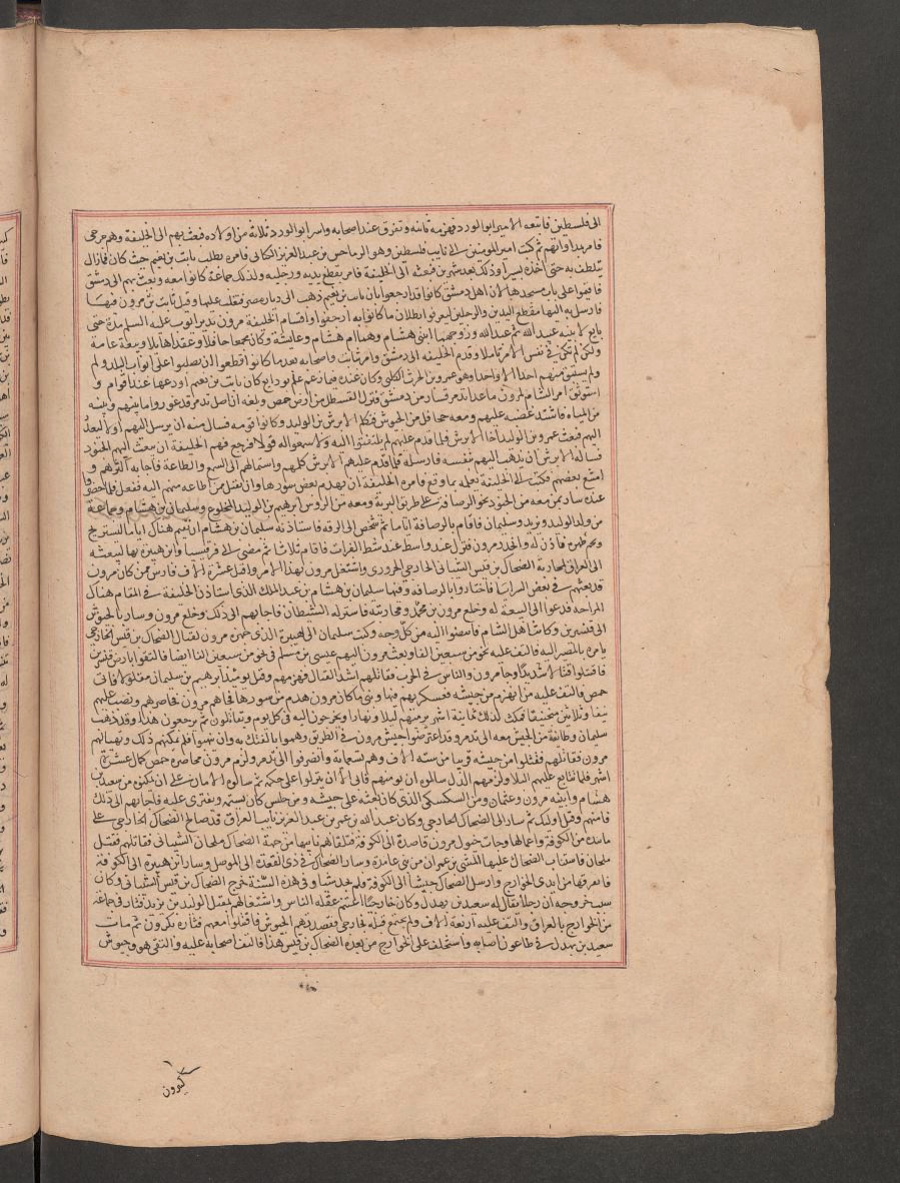 الى فلسطين فاتبعه الامير ابو الورد فهزمه ثانية وتفرق عنه اصحابه واسر ابو الورد ثلاثة من اولاده فبعث بهم الى الخليفة وهم جرحى
فامر بمداواتهم ثم كتب امير المومنين الى نايب فلسطين وهو الرماحس بن عبد العزيز الكناني فامره بطلب ثابت بن نعيم حيث كان فما زال
يتلطف به حتى اخذه اسيرا وذلك بعد شهرين فبعثه الى الخليفة فامر بقطع يديه ورجليه وكذلك جماعة كانوا معه وبعث بهم الى دمشق
فاقيموا على باب مسجدها لان اهل دمشق كانوا قد ارجعوا بان ثابت بن نعيم ذهب الى ديار مصر فتغلب عليها وقتل نايب مرون فيها
فارسل به اليها مقطع اليدين والرجلين ليعرفوا بطلان ما كانوا به ارجفوا واقام الخليفة مرون بدير ايوب عليه السلم مدة حتى
بايع لابنيه عبيد الله ثم عبد الله وزوجهما ابنتي هشام وهما ام هشام وعايشة وكان مجمعا حافلا وعقدا هايلا وبيعة عامة
ولكن لم تكن في نفس الامر تامة وقدم الخليفة الى دمشق وامر بثابت واصحابه بعد ما كانوا قطعوا ان يصلبوا على ابواب البلد ولم
ولم يستبق منهم احدا الا واحدا وهو عمرو بن الحرث الكلبي وكان عنده فيما زعم علم بودايع كان ثابت بن نعيم اودعها عند اقوام و
استوثق امر الشام لمرون ما عدا تدمر فسار من دمشق فنزل القسطل من ارض حمص وبلغه ان اهل تدمر قد غوروا ما بينهم وبينه
من المياه فاشتد غضبه عليهم ومعه جحافل من الجيوش فتكلم الابرش بن الوليد وكانوا قومه فسال منه ان يرسل اليهم اولا ليعذر
اليهم فبعث عمرو بن الوليد اخا الابرش فلما قدم عليهم لم يلتفتوا اليه ولا سمعوا له قولا فرجع فهم الخليفة ان يبعث اليهم الجنود
فساله الابرش ان يذهب اليهم بنفسه فارسله فلما قدم عليهم الابرش كلمهم واستمالهم الى السمع والطاعة فاجابه اكثرهم و
امتنع بعضهم فكتب الى الخليفة يعلمه بما وقع فامره الخليفة ان يهدم بعض سورها وان يقبل بمن اطاعه منهم اليه ففعل فلما حضروا
عنده سار بمن معه من الجنود نحو الرصافة على طريق البرية ومعه من الروس ابرهيم بن الوليد المخلوع وسليمان بن هشام وجماعة
من ولد الوليد ويزيد وسليمان فاقام بالرصافة اياما ثم شخص الى الرقة فاستاذنه سليمان بن هشام ان يقيم هناك اياما ليستريح
ويجم ظهره فاذن له وانحدر مرون فنزل عند واسط عند شط الفرات فاقام ثلاثا ثم مضى الى قرقيسيا وابن هبيرة بها ليبعثه
الى العراق لمحاربة الضحاك بن قيس الشيباني الخارجي الحروري واشتغل مرون بهذا الامر واقبل عشرة الاف فارس ممن كان مرون
قد بعثهم في بعض السرايا فاجتازوا بالرصافة وفيها سليمان بن هشام بن عبد الملك الذي استاذن الخليفة في المقام هناك
للراحة فدعوا الى البيعة له وخلع مرون بن محمد ومحاربته فاستزله الشيطان فاجابهم الى ذلك وخلع مرون وسار بالجيوش
الى قنسرين وكاتب اهل الشام فانفضوا اليه من كل وجه وكتب سليمان الى ابن هبيرة الذي جهزه مرون لقتال الضحاك بن قيس الخارجي
يامره بالمسير اليه فالتف عليه نحو من سبعين الفا وبعث مرون اليهم عيسى بن مسلم في نحو من سبعين الفا ايضا فالتقوا بارض قنسرين
فاقتتلوا قتالا شديدا وجا مرون والناس في الحرب فقاتلهم اشد القتال فهزمهم وقتل يومئذ ابرهيم بن سليمان
حمص فالتف عليه من انهزم من جيشه فعسكر بهم فيها وبنى ما كان مرون هدم من سورها فجاهم مرون فحاصرهم ونصب عليهم
نيفا وثلاثين منجنيقا فمكث كذلك ثمانية اشهر يرميهم ليلا ونهارا ويخرجون اليه في كل يوم ويقاتلون ثم يرجعون هذا وقد ذهب
سليمان وطايفة من الجيش معه الى تدمر وقد اعترضوا جيش مرون في الطريق وهموا بالفتك به وان ينهبوا فلم يمكنهم ذلك وتهيا لهم
مرون فقاتلهم فقتلوا من جيشه قريبا من ستة الاف وهم تسعماية وانصرفوا الى تدمر ولزم مرون محاصرة حمص كمال عشرة
اشهر فلما تتابع عليهم البلا ولزمهم الذل سالوه ان يومنهم فابى الا ان ينزلوا على حكمه ثم سالوه الامان على ان يمكنوه من سعيد بن
هشام وابنيه مرون وعثمان ومن السكسكي الذي كان معه على جيشه ومن حبشي كان يشتمه ويفتري عليه فاجابهم الى ذلك
فامنهم وقتل اوليك ثم سار الى الضحاك الخارجي وكان عبد الله بن عمر بن عبد العزيز نايب العراق قد صالح الضحاك الخارجي على
ما بيده من الكوفة واعمالها وجات خيول مرون قاصدة الى الكوفة فتلقاهم نايبها من جهة الضحاك ملحان الشيباني فقاتلهم فقتل
ملحان فاستناب الضحاك عليها المثنى بن عمران من بني عايذة وسار الضحاك في ذي القعدة الى الموصل وسار ابن هبيرة الى الكوفة
فانتزعها من ايدي الخوارج وارسل الضحاك جيشا الى الكوفة فلم يجد شيا وفي هذه السنة خرج الضحاك بن قيس الشيباني وكان
سبب خروجه ان رجلا يقال له سعيد بن بهدل وكان خارجيا اغتنم غفلة الناس واشتغالهم بقتل الوليد بن يزيد فثار في جماعة
من الخوارج بالعراق والتف عليه اربعة الاف ولم يجتمع قبله لخارجي فقصدتهم الجيوش فاقتتلوا معهم فتارة يكسرون ثم مات
سعيد بن بهدل في طاعون اصابه واستخلف على الخوارج من بعده الضحاك بن قيس هذا فالتف اصحابه عليه والتقى هو وجيوش